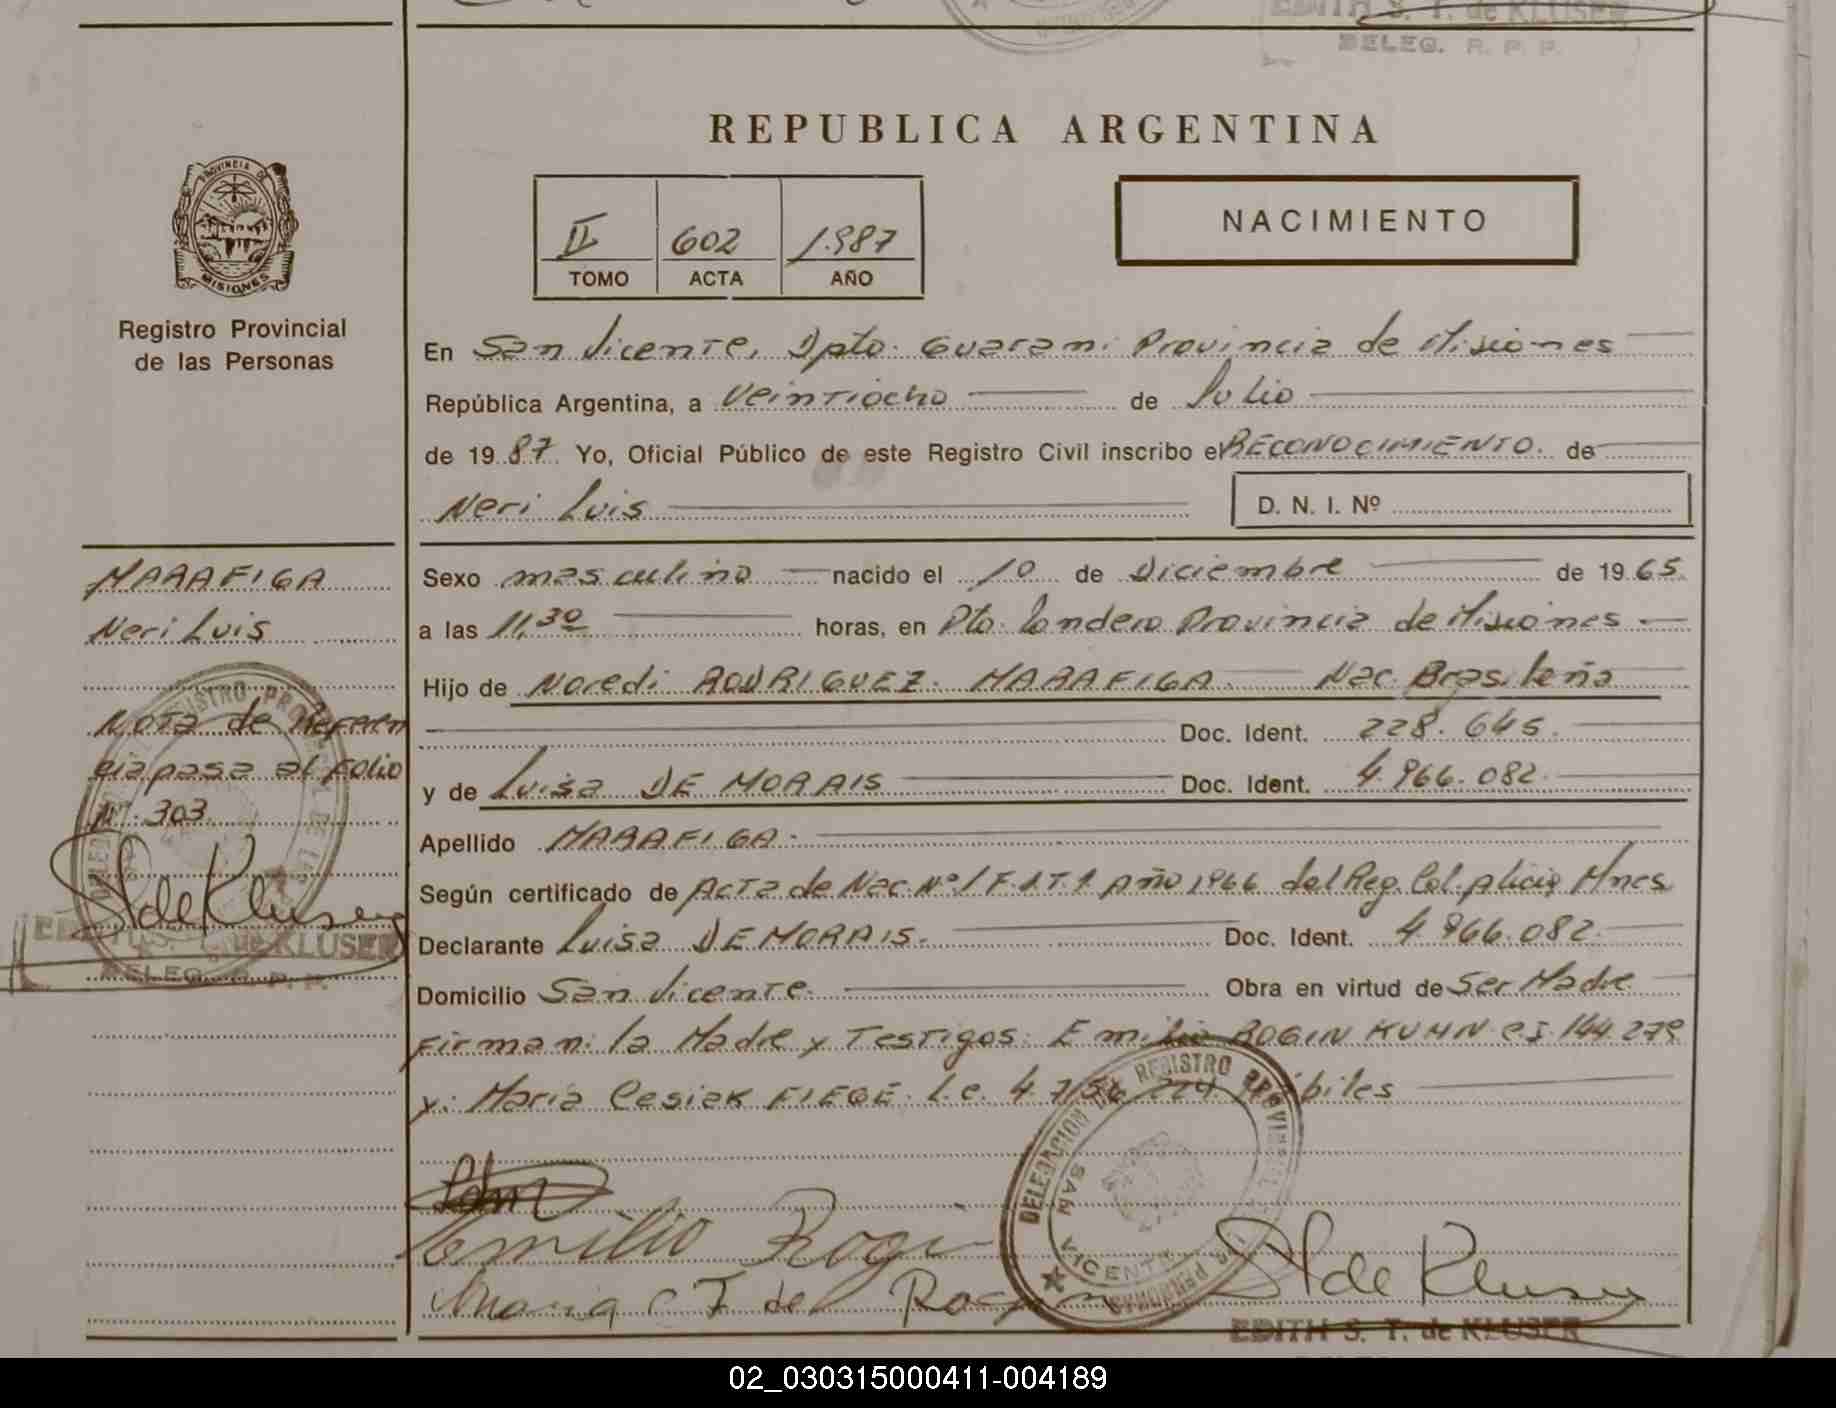 EDITH S. T. de KLUSER
DELEG. R. P. P.
REPUBLICA ARGENTINA
PROVINCIA DE
MISIONES
II 602 1.987
TOMO ACTA AÑO
NACIMIENTO
Registro Provincial
de las Personas
En San Vicente, Dpto. Guarani Provincia de Misiones
República Argentina, a Veintiocho de Julio
de 1987. Yo, Oficial Público de este Registro Civil inscribo el RECONOCIMIENTO. de
Neri Luis
D. N. I. Nº
MARAFIGA
Neri Luis
Nota de Referen
cia pasa al Folio
Nº. 303.
St de Kluser
EDITH S. T. de KLUSER
DELEG. R. P. P.
Sexo masculino nacido el 10 de Diciembre de 1965.
a las 11,30 horas, en Pto. Londero Provincia de Misiones
Hijo de Noredi RODRIGUEZ. MARAFIGA. Nac. Brasileña
Doc. Ident. 228.645.
y de Luisa DE MORAIS Doc. Ident. 4.966.082.
Apellido MARAFIGA.
Según certificado de Acta de Nac. Nº1 F.1 T.1 Año 1966 del Reg. Col. Alicia Mnes
Declarante Luisa DE MORAIS. Doc. Ident. 4.966.082.
Domicilio San Vicente. Obra en virtud de Ser Madre
Firman: la Madre y Testigos: Emilio ROGIN KUHN C.I. 144.279
y: Maria Cesiak FIEGE. L.C. 4.756.224. Hábiles
DELEGACION DEL REGISTRO PROVINCIAL DE LAS PERSONAS
SAN VICENTE
Emilio Rogin
Maria C F de Rogin
St de Kluser
EDITH S. T. de KLUSER
02_030315000411-004189